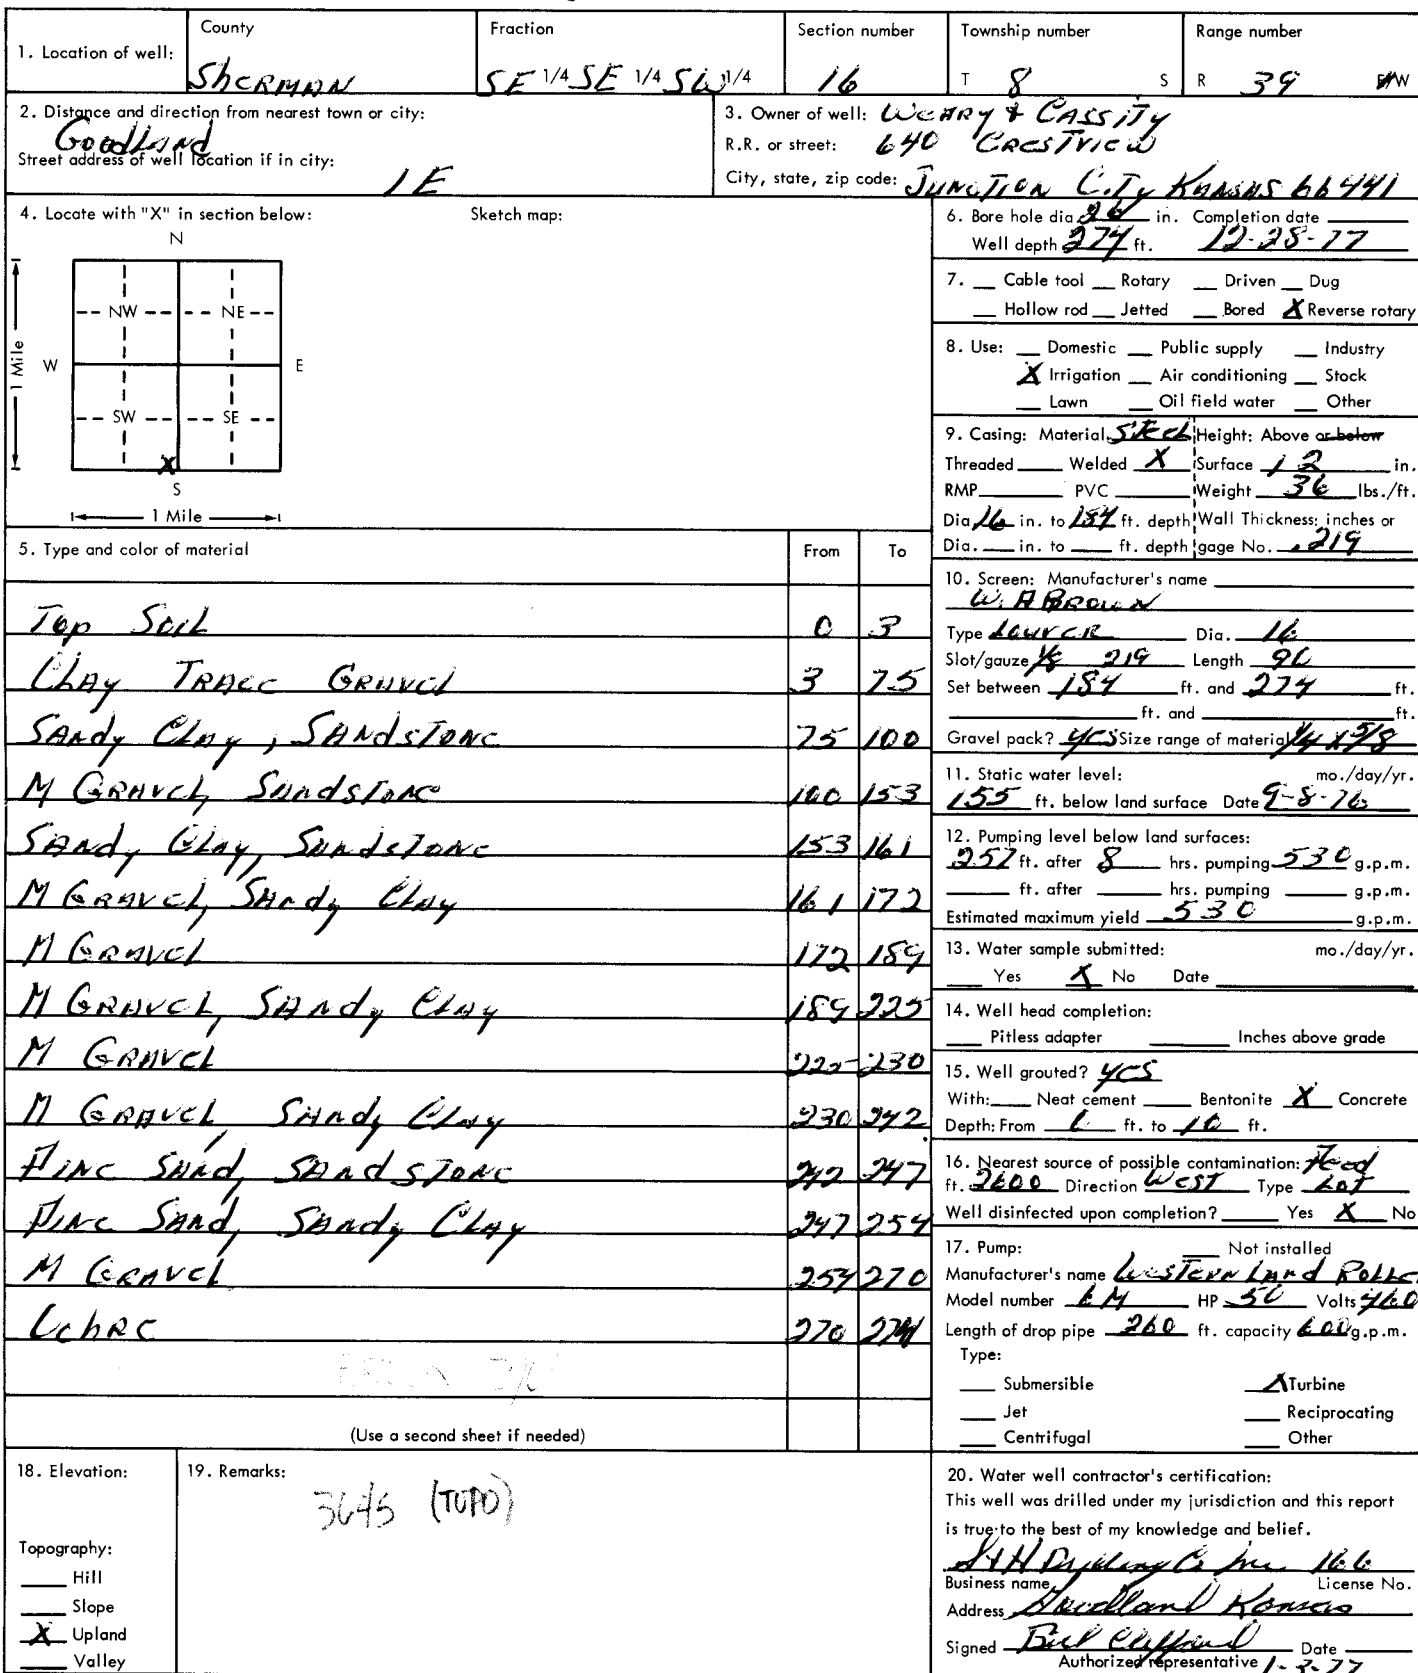 County Fraction Section number Township number Range number
1. Location of well: Sherman SE 1/4 SE 1/4 SW 1/4 16 T 8 S R 39 E/W
2. Distance and direction from nearest town or city:
Goodland
Street address of well location if in city:
1E
3. Owner of well: Weary & Cassity
R.R. or street: 640 Crestview
City, state, zip code: Junction City Kansas 66441
4. Locate with "X" in section below: Sketch map:
N
NW NE
W E
1 Mile
SW SE
X
S
1 Mile
5. Type and color of material From To
Top Soil 0 3
Clay Trace Gravel 3 75
Sandy Clay, Sandstone 75 100
M Gravel, Sandstone 100 153
Sandy Clay, Sandstone 153 161
M Gravel, Sandy Clay 161 172
M Gravel 172 189
M Gravel, Sandy Clay 189 225
M Gravel 225 230
M Gravel, Sandy Clay 230 242
Fine Sand, Sandstone 242 247
Fine Sand, Sandy Clay 247 254
M Gravel 254 270
Ochre 270 274
(Use a second sheet if needed)
6. Bore hole dia 26 in. Completion date
Well depth 274 ft. 12-28-77
7. Cable tool Rotary Driven Dug
Hollow rod Jetted Bored X Reverse rotary
8. Use: Domestic Public supply Industry
X Irrigation Air conditioning Stock
Lawn Oil field water Other
9. Casing: Material Steel Height: Above or below
Threaded Welded X Surface 12 in.
RMP PVC Weight 36 lbs./ft.
Dia 16 in. to 184 ft. depth Wall Thickness: inches or
Dia. in. to ft. depth gage No. .219
10. Screen: Manufacturer's name
W. A Brown
Type Louver Dia. 16
Slot/gauze 1/8 219 Length 90
Set between 184 ft. and 274 ft.
ft. and ft.
Gravel pack? yes Size range of material 1/4 x 5/8
11. Static water level: mo./day/yr.
155 ft. below land surface Date 9-8-76
12. Pumping level below land surfaces:
257 ft. after 8 hrs. pumping 530 g.p.m.
ft. after hrs. pumping g.p.m.
Estimated maximum yield 530 g.p.m.
13. Water sample submitted: mo./day/yr.
Yes X No Date
14. Well head completion:
Pitless adapter Inches above grade
15. Well grouted? yes
With: Neat cement Bentonite X Concrete
Depth: From 0 ft. to 10 ft.
16. Nearest source of possible contamination: Feed
ft. 2600 Direction West Type Lot
Well disinfected upon completion? Yes X No
17. Pump: Not installed
Manufacturer's name Western Land Roller
Model number 6M HP 50 Volts 460
Length of drop pipe 260 ft. capacity 600 g.p.m.
Type:
Submersible X Turbine
Jet Reciprocating
Centrifugal Other
18. Elevation: 19. Remarks:
3645 (TOPO)
Topography:
Hill
Slope
X Upland
Valley
20. Water well contractor's certification:
This well was drilled under my jurisdiction and this report
is true to the best of my knowledge and belief.
S & H Drilling Co Inc 166
Business name License No.
Address Goodland Kansas
Signed Bill Clifford Date
Authorized representative 1-3-77